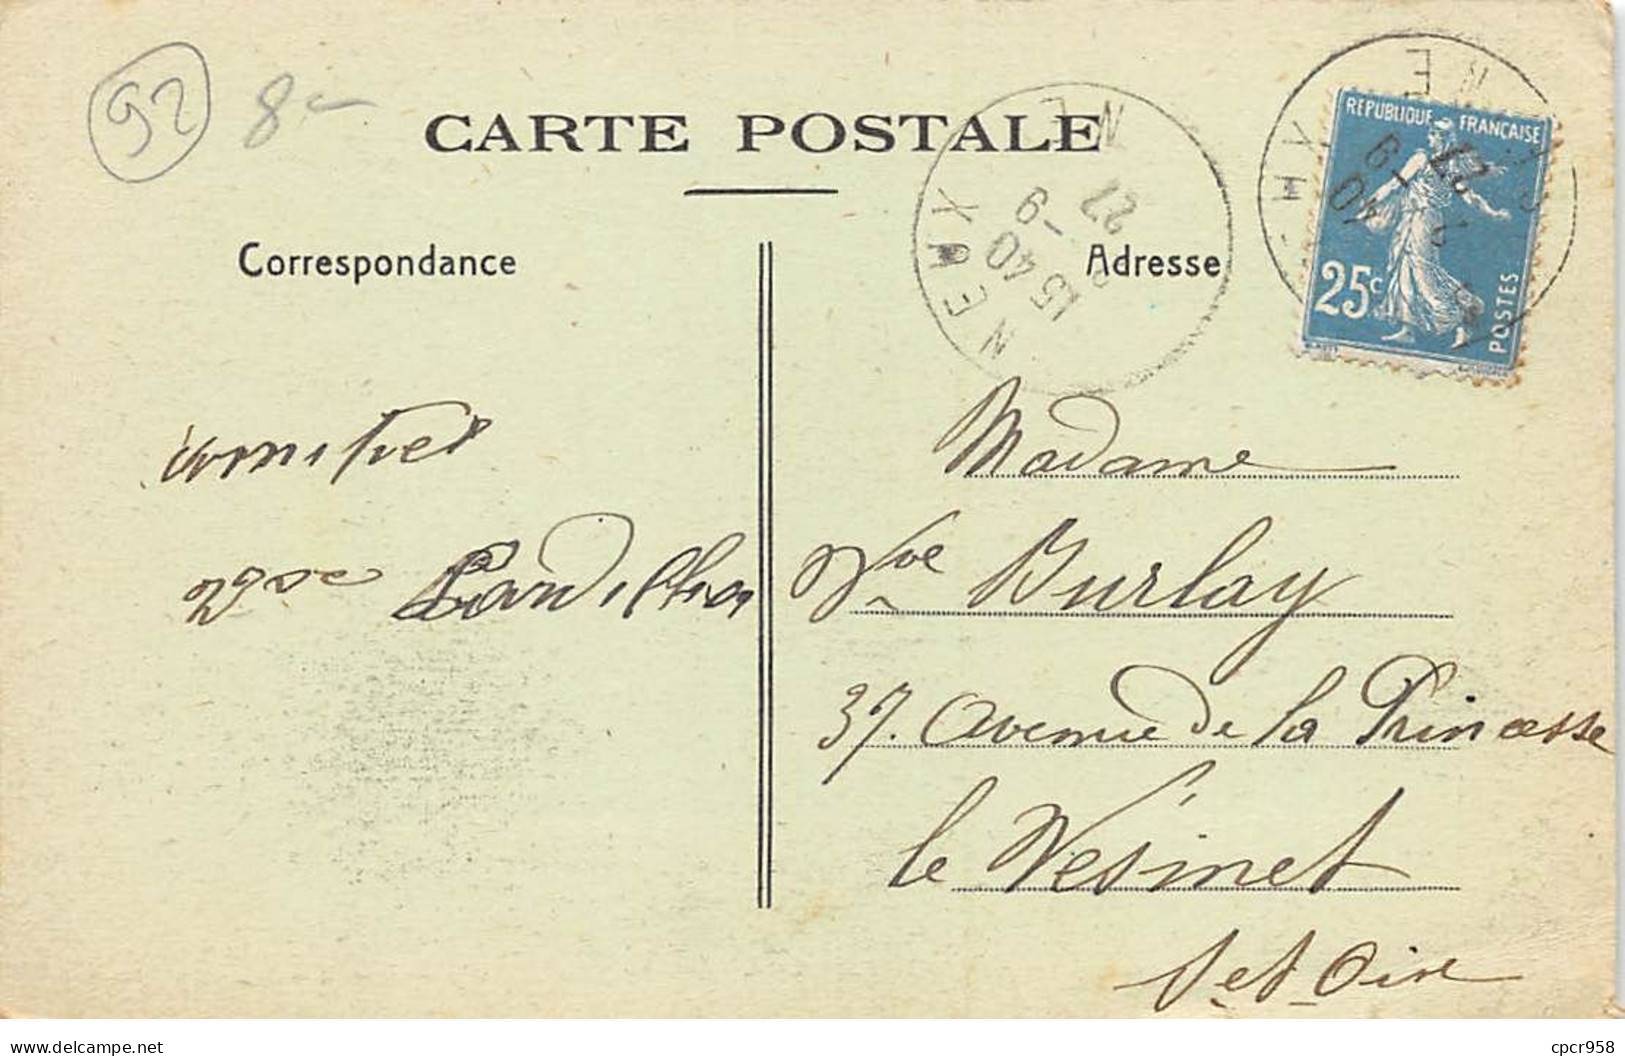 92 8
CARTE POSTALE
Correspondance
Adresse
RÉPUBLIQUE FRANÇAISE
25c
POSTES
15 40
9
27
Madame
Vve Burlay
37. Avenue de la Princesse
le Vesinet
S et Oise
delcampe.net
cpcr958